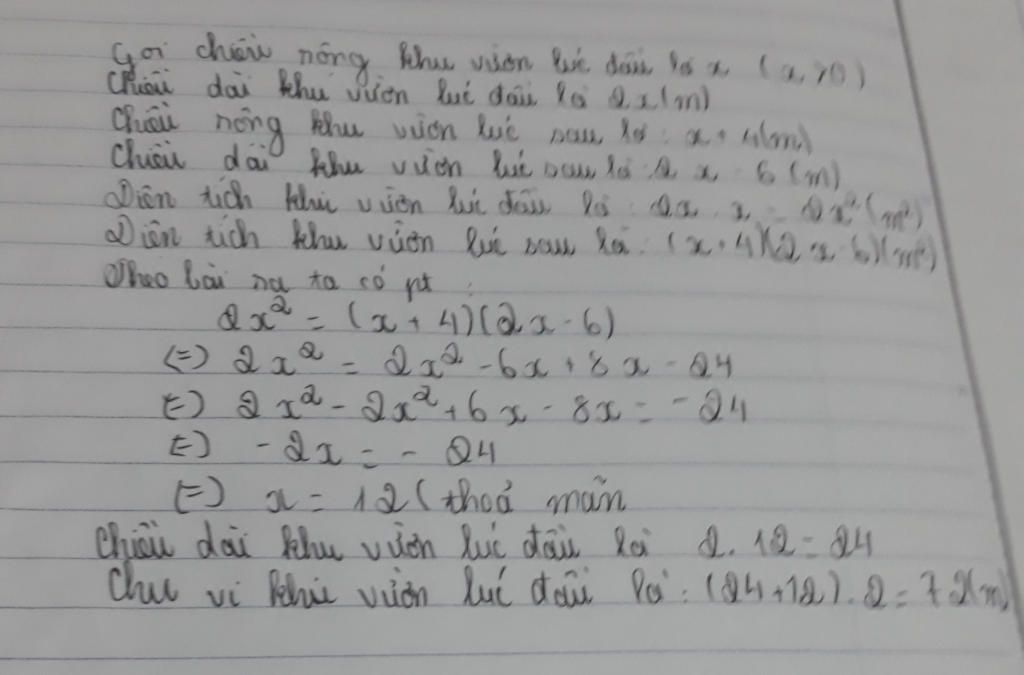 Gọi chiều rông khu vườn lúc đầu là x (x>0)
Chiều dài khu vườn lúc đầu là 2x(m)
Chiều rông khu vườn lúc sau là : x + 4(m)
Chiều dài khu vườn lúc sau là 2x - 6 (m)
Diện tích khu vườn lúc đầu là : 2x . x = 2x² (m²)
Diện tích khu vườn lúc sau là : (x + 4)(2x - 6)(m²)
Theo bài ra ta có pt :
2x² = (x + 4)(2x - 6)
(=) 2x² = 2x² - 6x + 8x - 24
(=) 2x² - 2x² + 6x - 8x = - 24
(=) - 2x = - 24
(=) x = 12 (thoả mãn
Chiều dài khu vườn lúc đầu là 2. 12 = 24
Chu vi khu vườn lúc đầu là : (24 + 12) . 2 = 72(m)